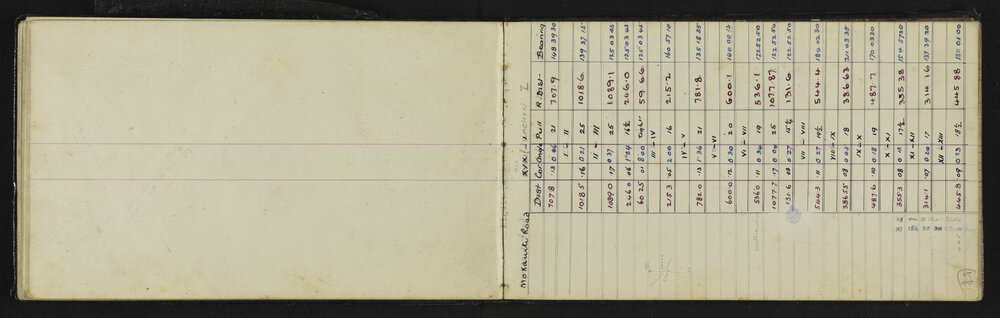 Mokauiti Road
Dist Cor Angle Pull R. Dist- Bearing
707.8 .13 0 46 21 707.9 148 39 30
I - II
1018.5 .16 0 21 25 1018.6 139 37 15
II - III
1089.0 17 0 37 25 1089.1 125 03 45
246.0 06 1 24 16½ 246.0 125 03 45
60 25 01 8 00 tight 59 66 125 03 45
III - IV
215.3 05 2 00 16 215.2 160 57 10
IV - V
782.0 13 1 36 21 781.8 135 18 35
V - VI
600.0 12 0 30 20 600.1
VI - VII
536.0 11 0 34 19 536.1 122 52 50
1077.7 17 0 04 25 1077.87 122 52 50
131.6 03 0 27 15½ 131.6 122 52 50
VII - VIII
544.3 .11 0 27 544.4 184 02 30
VIII - IX
386.55 08 0 05 18 386.63 211 03 35
IX - X
487.6 .10 0 18 19 487.7 170 03 30
X - XI
335.3 08 0 18 17½ 335 38 154 57 20
XI - XII
314.1 .07 0 20 17 314 16 137 39 20
XII - XIII
445.8 09 0 23 18½ 445 88 151 01 00
XI 186 35 30